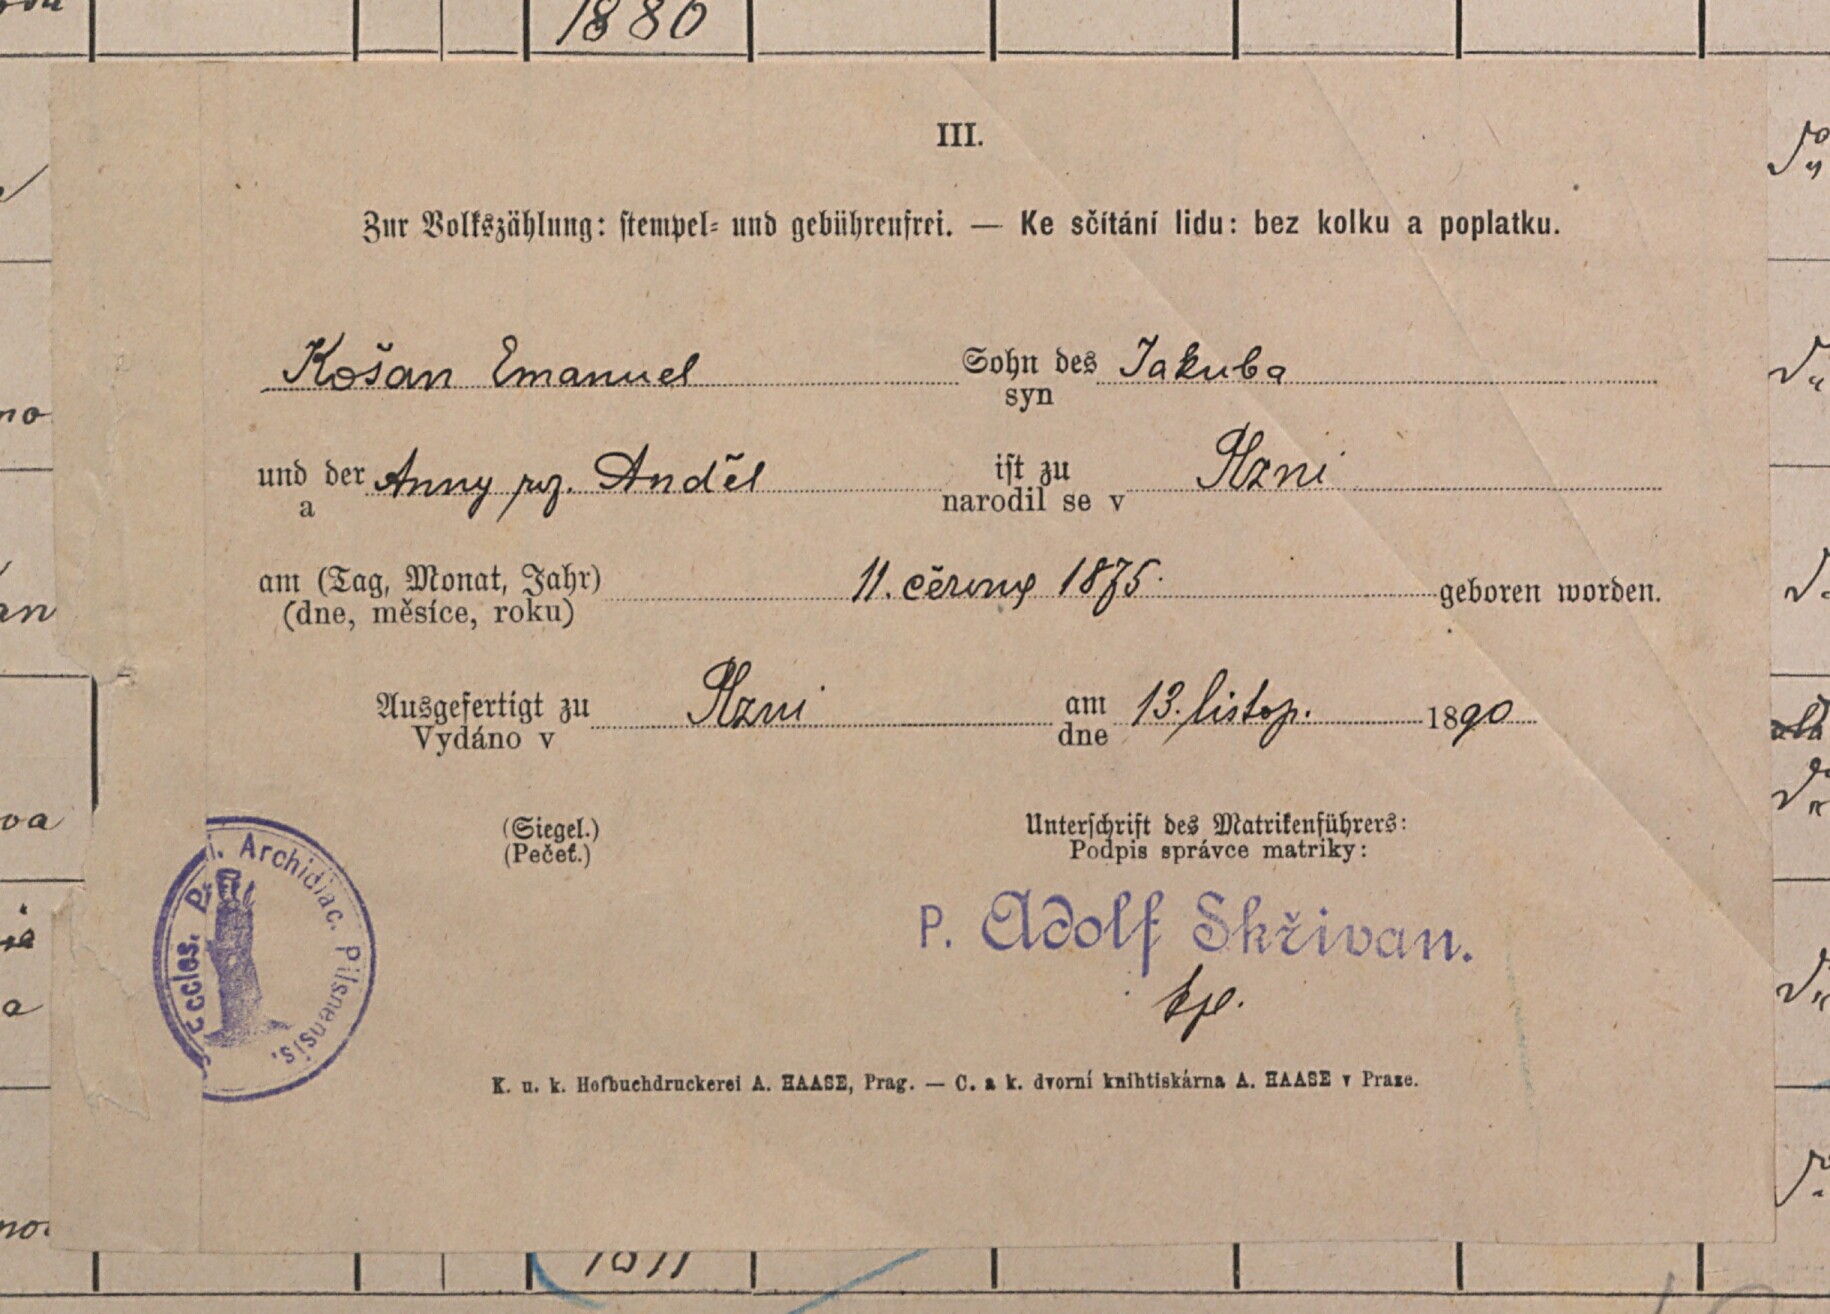 1880
III.
Zur Volkszählung: stempel- und gebührenfrei. — Ke sčítání lidu: bez kolku a poplatku.
Košan Emanuel Sohn des Jakuba
syn
und der Anny roz. Anděl ist zu Plzni
a narodil se v
am (Tag, Monat, Jahr) 11. června 1875. geboren worden.
(dne, měsíce, roku)
Ausgefertigt zu Plzni am 13. listop. 1890
Vydáno v dne
(Siegel.) Unterschrift des Matrikenführers:
(Pečeť.) Podpis správce matriky:
Eccles. Archidiac. Pilsnensis.
P. Adolf Skřivan.
kpl.
K. u. k. Hofbuchdruckerei A. HAASE, Prag. — C. a k. dvorní knihtiskárna A. HAASE v Praze.